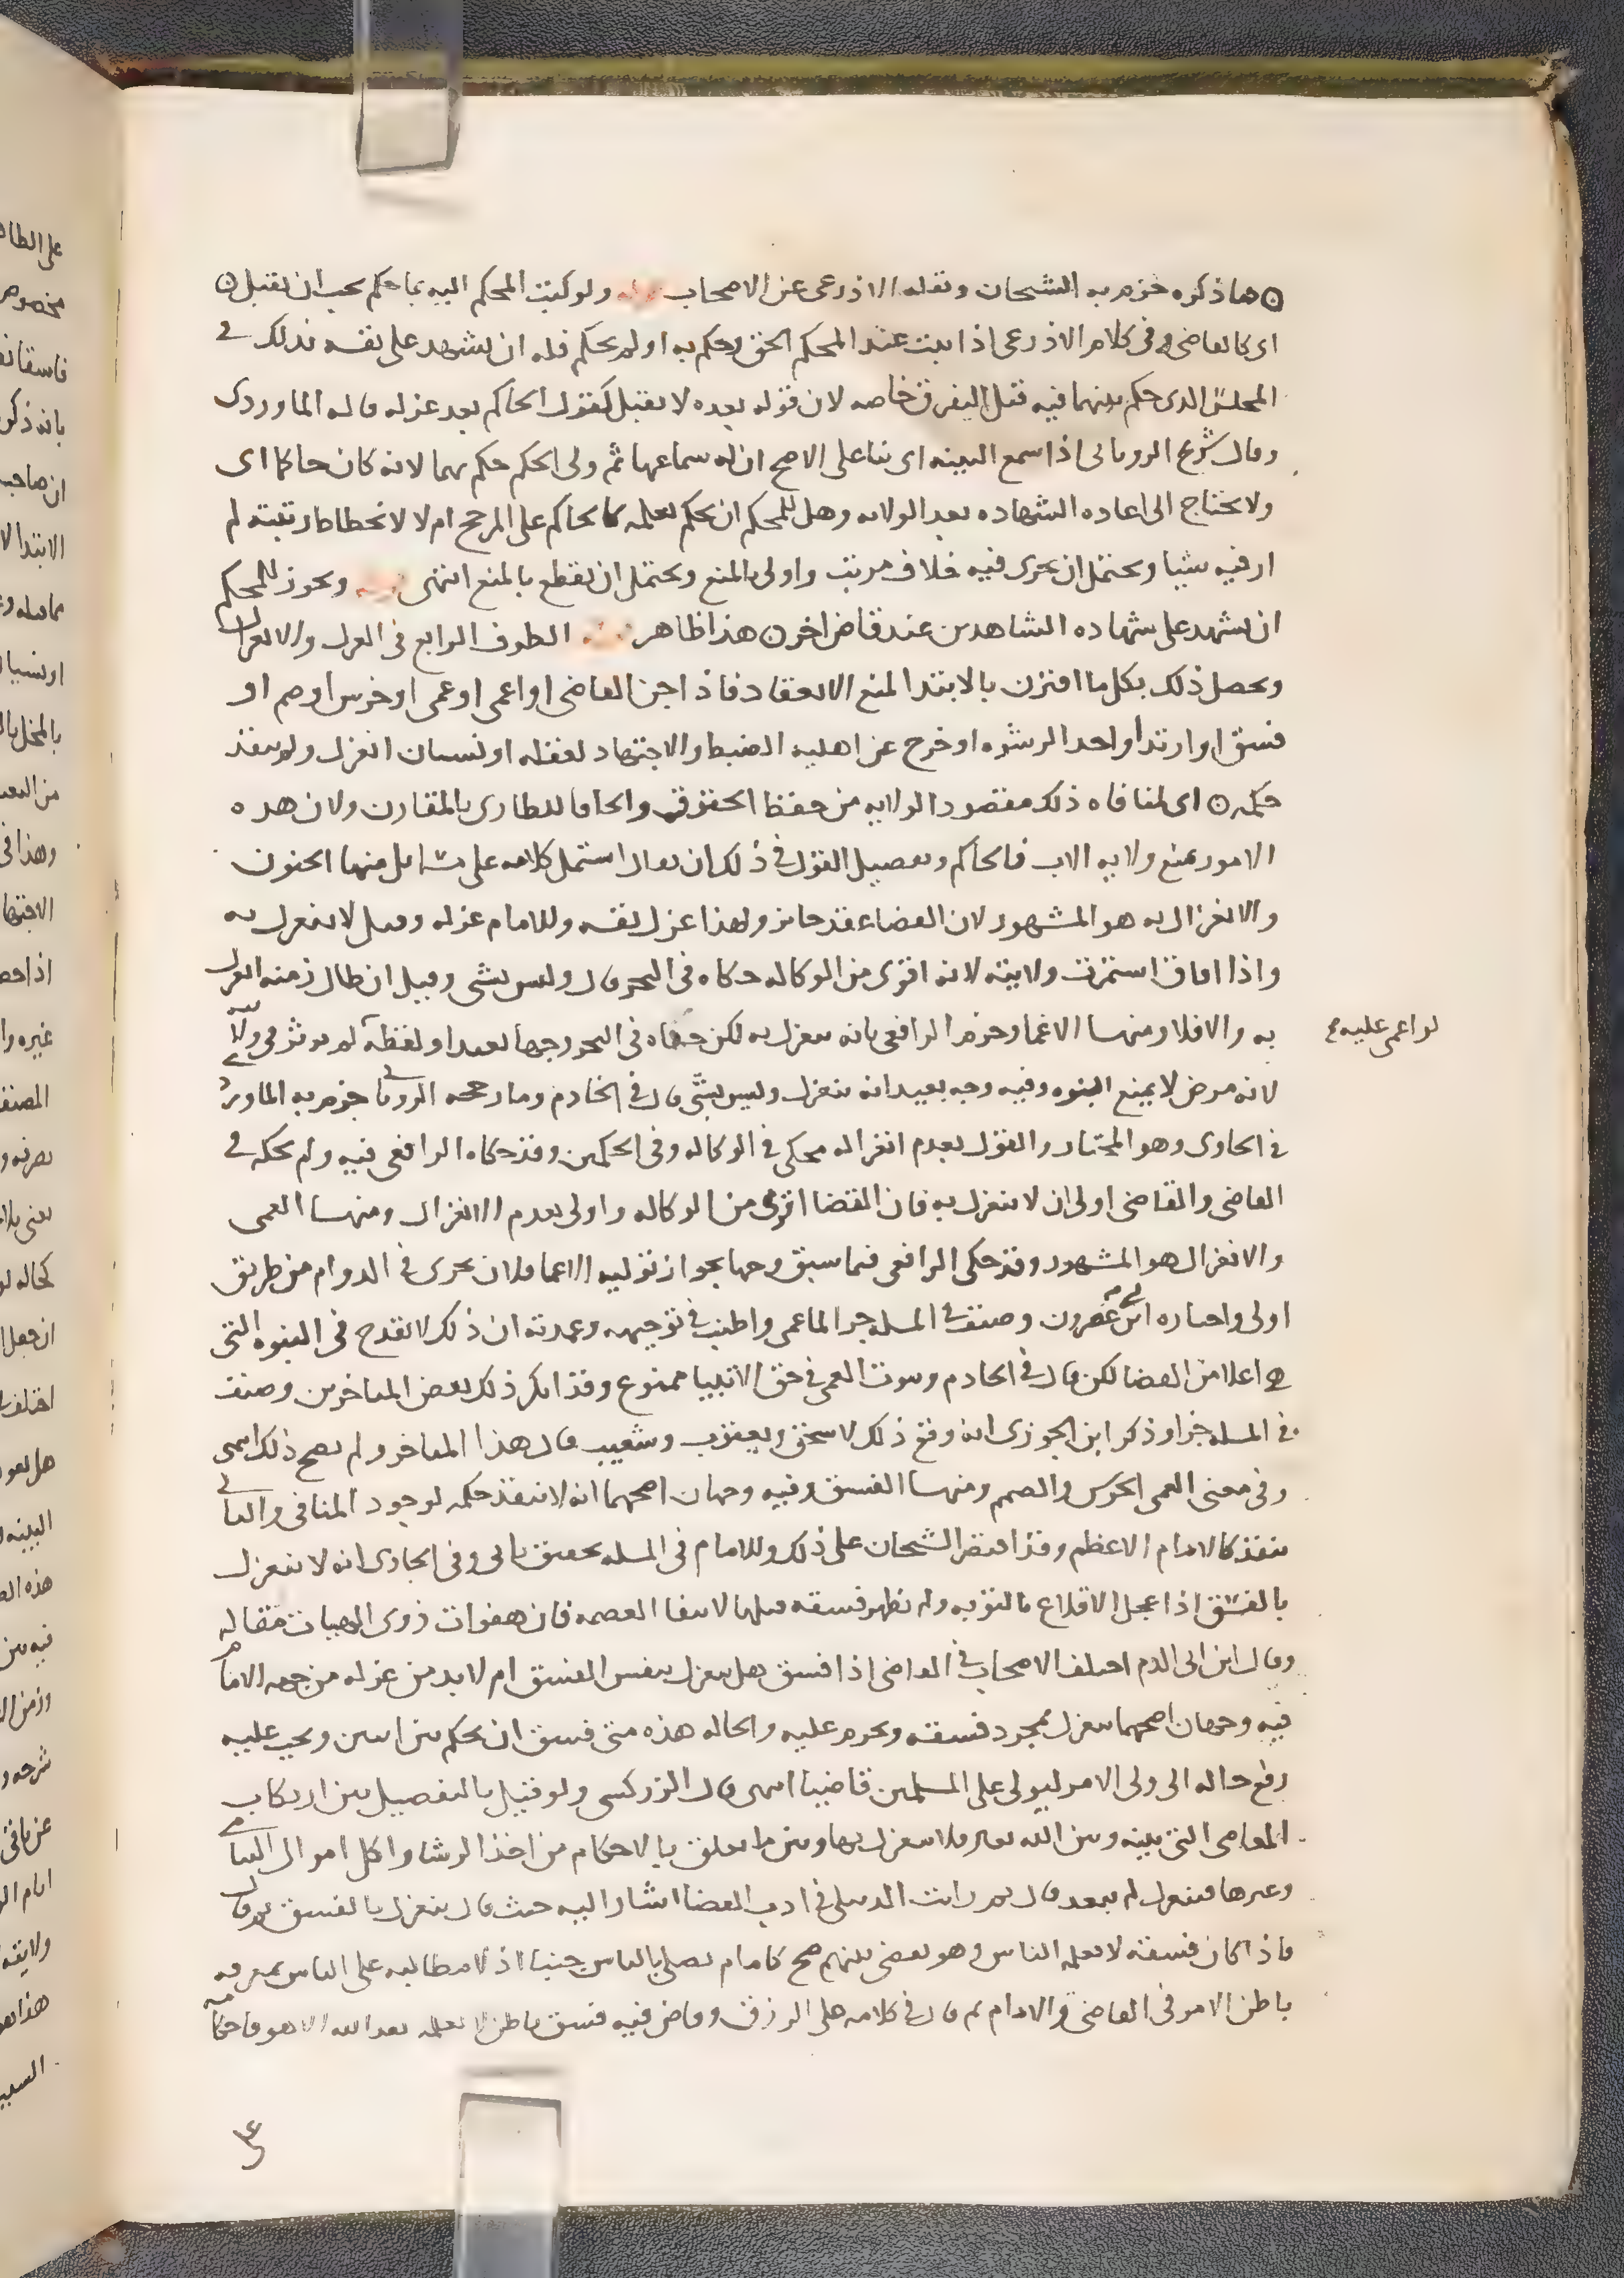 ما ذكره جزم به الشيخان ونقله الاذرعي عن الاصحاب ولو كتب المحكم اليه بما حكم يجب ان يقبل
اى كالقاضى وفى كلام الاذرعى اذا ثبت عند المحكم الحق وحكم به او لم يحكم فله ان يشهد على نفسه بذلك فى
المجلس الذى حكم بينهما فيه قبل التفرق خاصه لان قوله بعده لا يقبل كقول الحاكم بعد عزله قاله الماوردى
وقال شريح الرويانى اذا سمع البينه اى بنا على الاصح ان له سماعها ثم ولى الحكم حكم بهما لانه كان حاكما اى
ولا يحتاج الى اعاده الشهاده بعد الولايه وهل للمحكم ان يحكم بعلمه كالحاكم على المرجح ام لا لانحطاط رتبته لم
ار فيه شيا ويحتمل ان يجرى فيه خلاف مرتب واولى بالمنع ويحتمل ان يقطع بالمنع انتهى ويجوز للمحكم
ان يشهد على شهاده الشاهدين عند قاض اخر هذا ظاهر الطرف الرابع فى العزل والانعزال
ويحصل ذلك بكل ما اقترن بالابتدا لمنع الانعقاد فاذا جن القاضى او اغمى او عمى او خرس او صم او
فسق او ارتد او اخذ الرشوه او خرج عن اهليه الضبط والاجتهاد لغفله او نسيان انعزل ولم ينفذ
حكمه اى لمنافاه ذلك مقصود الولايه من حفظ الحقوق والحاقا للطارى بالمقارن ولان هده
الامور تمنع ولايه الاب فالحاكم وتفصيل القول فى ذلك ان يقال اشتمل كلامه على مسايل منها الجنون
والانعزال به هو المشهور لان القضا عقد جائز ولهذا عزل نفسه وللامام عزله وقيل لا ينعزل به
واذا افاق استمرت ولايته لانه اقوى من الوكاله حكاه فى البحر قال وليس بشى وقيل ان طال زمنه انعزل
به والا فلا ومنها الاغما وجزم الرافعى بانه ينعزل به لكن حكاه فى البحر وجها بعيدا ولفظه لم يوثر فى ولايته
لو اغمى عليه
لانه مرض لا يمنع النبوه وفيه وجه بعيد انه ينعزل وليس بشى قال فى الخادم وما رجحه الرويانى جزم به الماوردى
فى الحاوى وهو المختار والقول بعدم انعزاله محكى فى الوكاله وفى الحكمين وقد حكاه الرافعى فيه ولم يحكه فى
القاضى والقاضى اولى ان لا ينعزل به فان القضا اقوى من الوكاله واولى بعدم الانعزال ومنها العمى
والانعزال هو المشهور وقد حكى الرافعى فيما سبق وجها بجواز توليه الاعما فلان يجرى فى الدوام من طريق
اولى واختاره ابن ابى عصرون وصنف فى المسله جزا لما عمى واطنب فى توجيهه وعمدته ان ذلك لا يقدح فى النبوه التى
هى اعلا من القضا لكن قال فى الخادم وثبوت العمى فى حق الانبيا ممنوع وقد انكر ذلك بعض المتاخرين وصنف
فى المسله جزا وذكر ابن الجوزى انه وقع ذلك لاسحق ويعقوب وشعيب قال هذا المتاخر ولم يصح ذلك انتهى
وفى معنى العمى الخرس والصمم ومنها الفسق وفيه وجهان اصحهما انه لا ينفذ حكمه لوجود المنافى والثانى
ينفذ كالامام الاعظم وقد اقتصر الشيخان على ذلك وللامام فى المسله تحقيق ياتى وفى الحاوى انه لا ينعزل
بالفسق اذا عجل الاقلاع بالتوبه ولم يظهر فسقه قبلها لانتفا العصمه فان هفوات ذوى الهيات مقاله
وقال ابن ابى الدم اختلف الاصحاب فى القاضى اذا فسق هل ينعزل بنفس الفسق ام لا بد من عزله من جهه الامام
فيه وجهان اصحهما ينعزل بمجرد فسقه ويحرم عليه والحاله هذه متى فسق ان يحكم بين اثنين ويجب عليه
رفع حاله الى ولى الامر ليولى على المسلمين قاضيا انتهى قال الزركشى ولو قيل بالتفصيل بين ارتكاب
المعاصى التى بينه وبين الله تعالى فلا ينعزل بها وبين ما يتعلق بالاحكام من اخذ الرشا واكل اموال اليتامى
وغيرها فينعزل لم يبعد قال ثم رايت الدبيلى فى ادب القضا اشار اليه حيث قال ينعزل بالفسق ثم قال
فاذا كان فسقه لا يعلمه الناس وهو يقضى بينهم صح كامام يصلى بالناس جنبا اذ لا مطالبه على الناس بمعرفه
باطن الامر فى القاضى والامام ثم قال فى كلامه على الرزق وقاض فيه فسق باطن لا يعلمه بعد الله الا هو فاحكامه